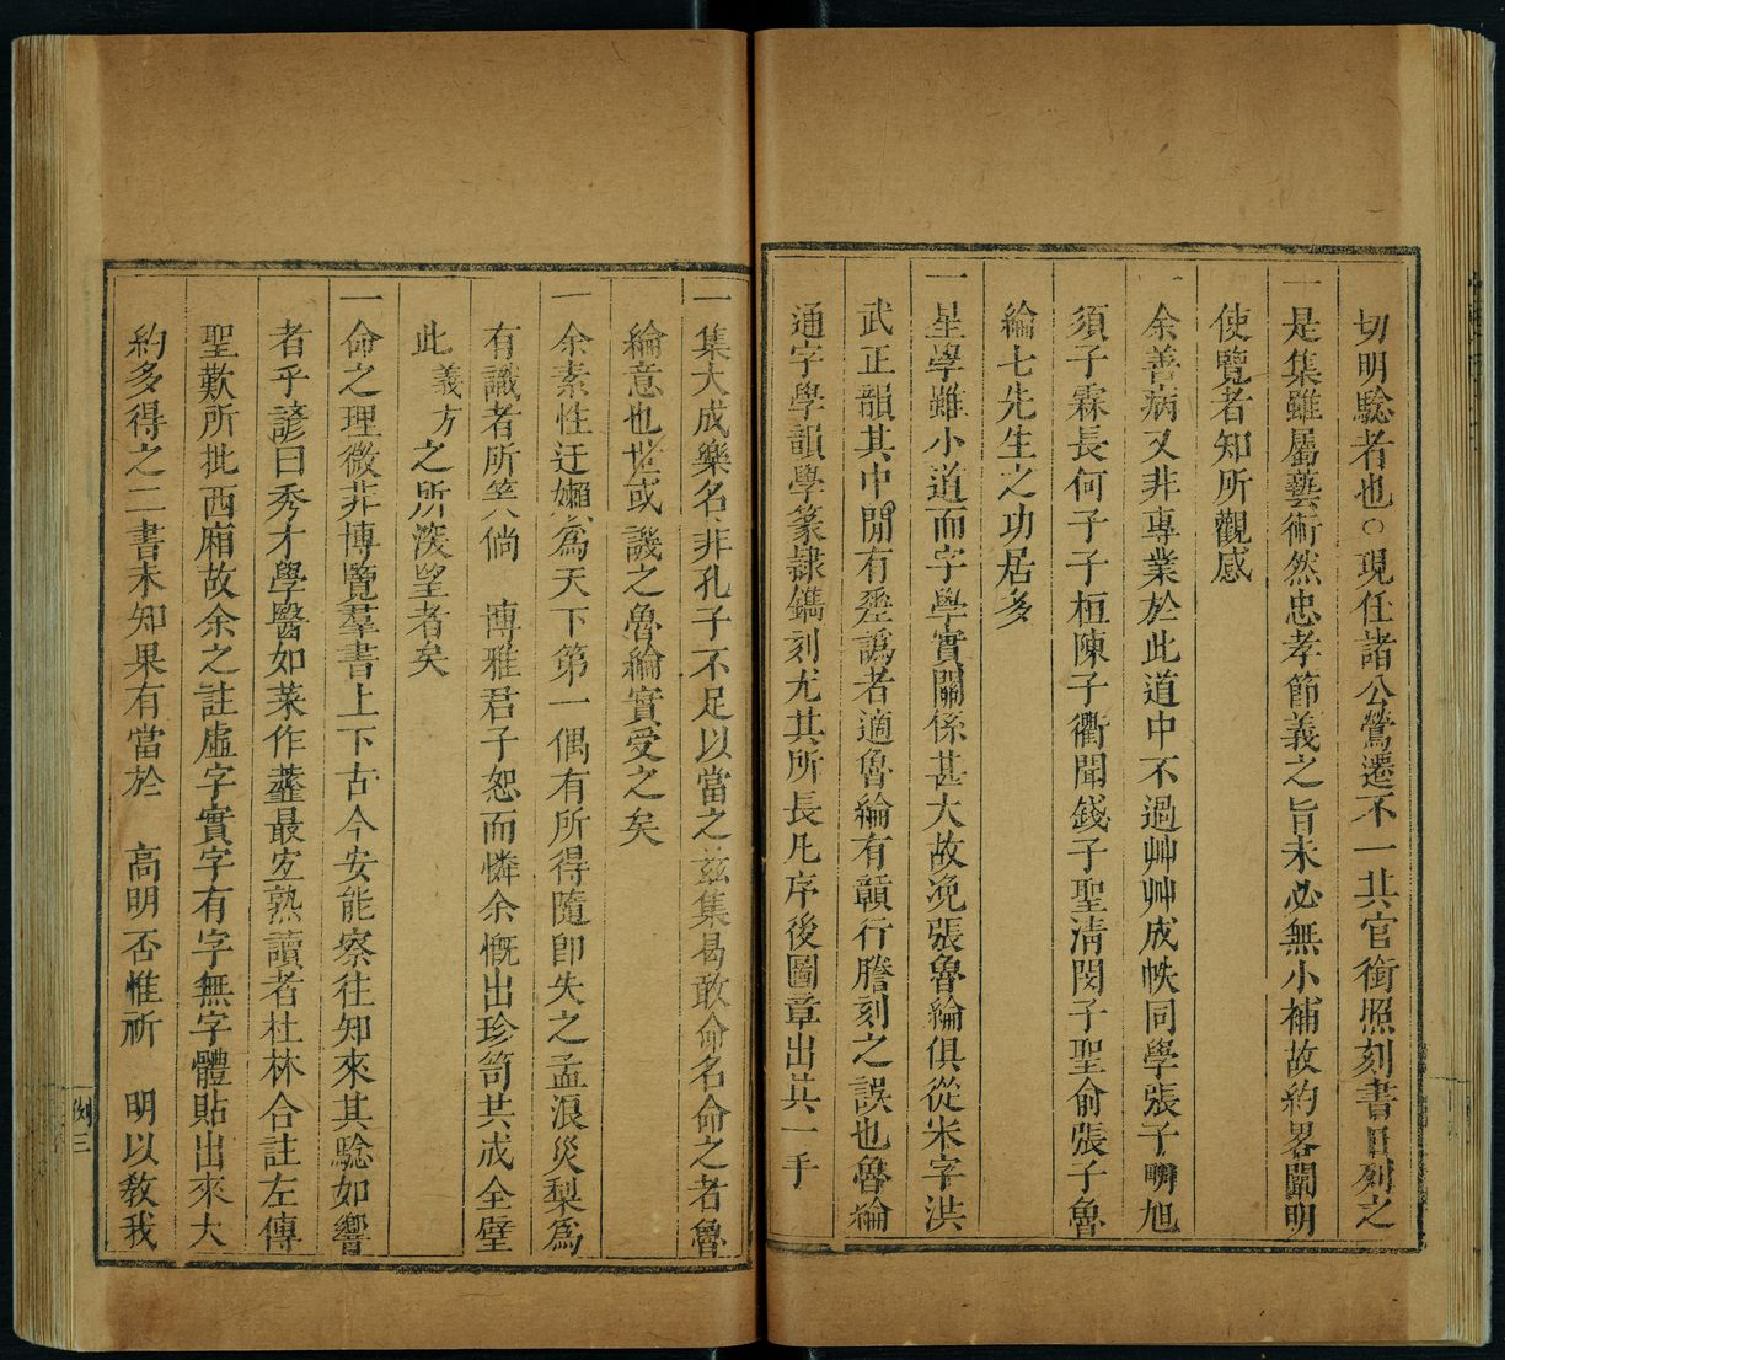 切明騐者也○現任諸公鶯遷不一其官銜照刻書日列之
一是集雖屬藝術然忠孝節義之旨未必無小補故約畧闡明
使覽者知所觀感
一余善病又非專業於此道中不過艸艸成帙同學張子疄旭
須子霖長何子子桓陳子衢聞錢子聖清閔子聖俞張子魯
綸七先生之功居多
一星學雖小道而字學實關係甚大故凂張魯綸俱從米字洪
武正韻其中閒有差譌者適魯綸有贛行謄刻之誤也魯綸
通字學韻學篆隷鐫刻尤其所長凡序後圖章出其一手
一集大成樂名非孔子不足以當之兹集曷敢命名命之者魯
綸意也世或譏之魯綸實受之矣
一余素性迂嬾爲天下第一偶有所得隨卽失之孟浪災梨爲
有識者所笑倘　博雅君子恕而憐余慨出珍笥共成全璧
此義方之所深望者矣
一命之理微非博覽羣書上下古今安能察往知來其騐如響
者乎諺曰秀才學醫如菜作虀最宜熟讀者杜林合註左傳
聖歎所批西廂故余之註虛字實字有字無字體貼出來大
約多得之二書未知果有當於　高明否惟祈　明以教我
例三